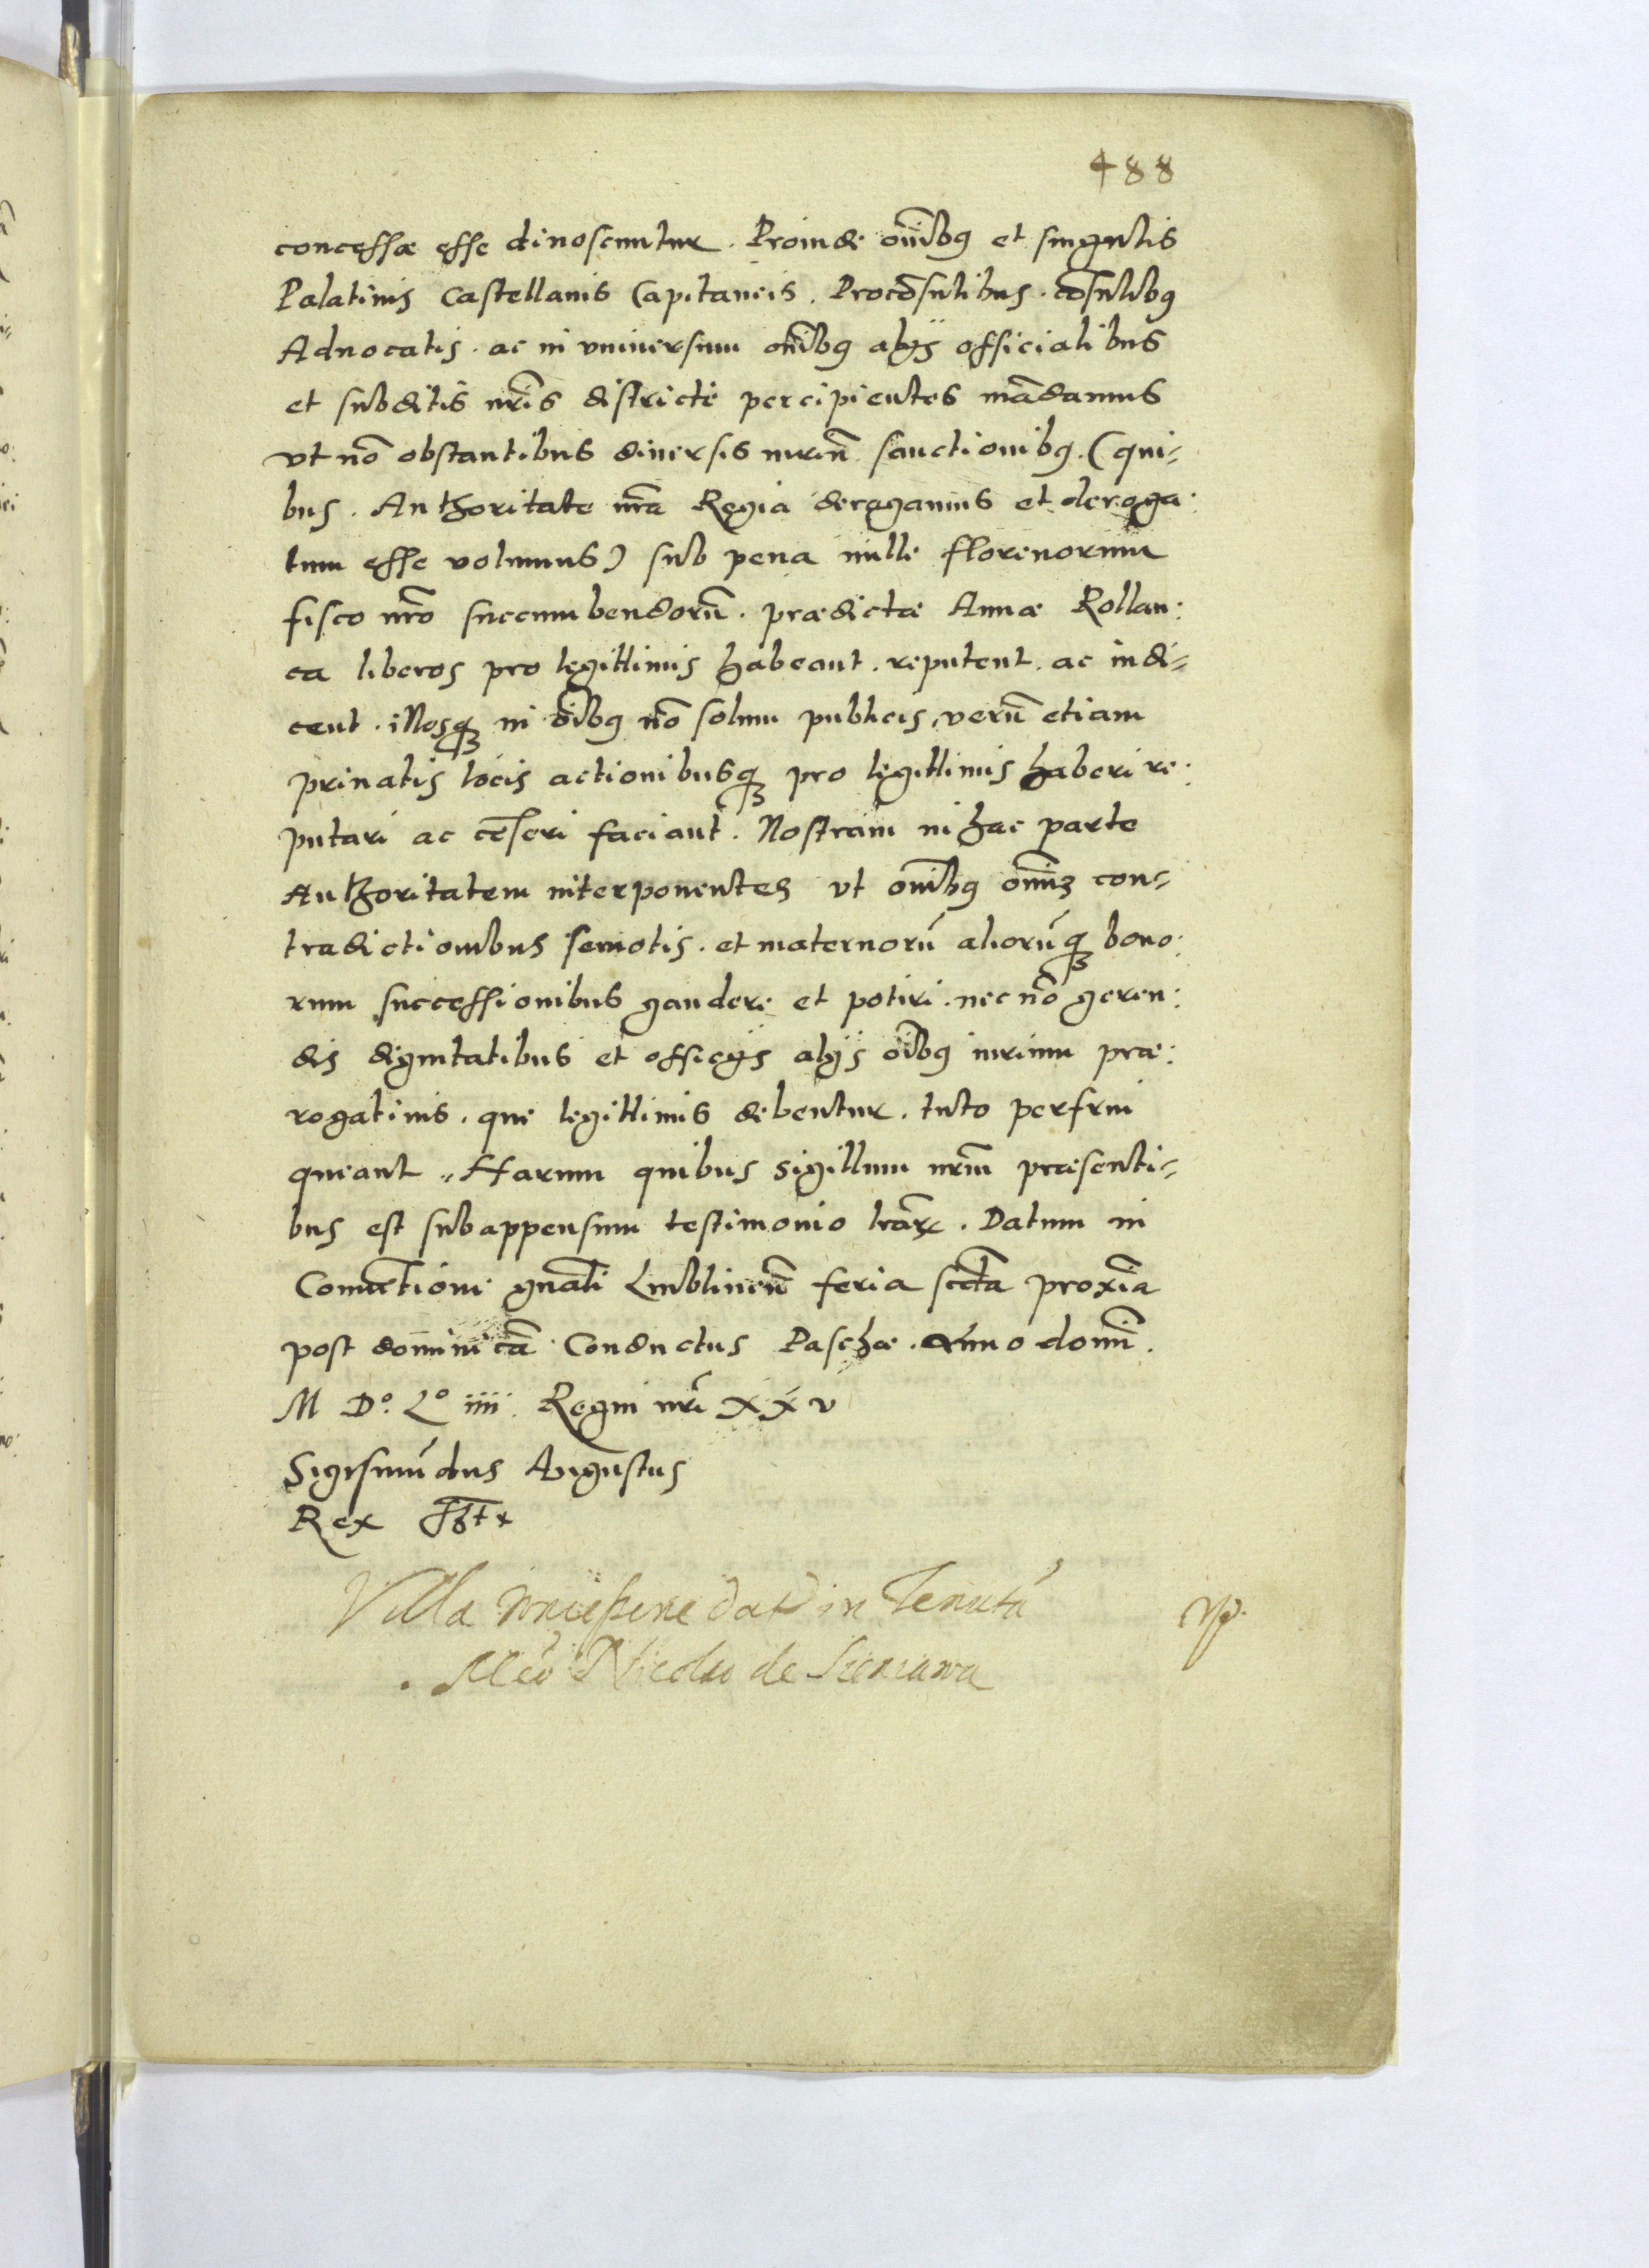 488
concessæ esse dinoscuntur. Proinde om̄ibꝰ et singulis
Palatinis Castellanis Capitaneis. Procōsulibus. cōsulibꝰ
Aduocatis. ac in vniuersum om̄ibꝰ alijs officialibus
et subditis nr̄is districte percipientes mādamus
vt nō obstantibus diuersis iuriū sanctionibꝰ. (qui-
bus. Authoritate nr̄a Regia derogamus et deroga:
tum esse volumus) sub pena mille florenorum
fisco nr̄o succumbendorū. prædictæ Annæ Rollan:
ca liberos pro legittimis habeant. reputent. ac indi-
cent. illosqꝫ in oībꝰ nō solum publicis, verū etiam
priuatis locis actionibusqꝫ pro legittimis haberi re:
putari ac cēseri faciant. Nostram in hac parte
Authoritatem interponentes vt om̄ibꝰ om̄iũ con-
tradictionibus semotis. et maternorū aliorūqꝫ bono:
rum successionibus gaudere et potiri. nec nō geren:
dis dignitatibus et officijs alijs oībꝰ iurium præ:
rogatiuis. que legittimis debentur. tuto perfrui
queant. Harum quibus sigillum nr̄m præsenti-
bus est subappensum testimonio lr̄arꝝ. Datum in
Conuētione gn̄ali Lublinen̄ feria scd̄a proxīa
post dominicā Conductus Paschæ. Anno domī.
M Dº. Lº iiii. Regni nr̄i XXv
Sigismūdus Augustus
Rex
Villa dat in Tenutā
de Sieniawa